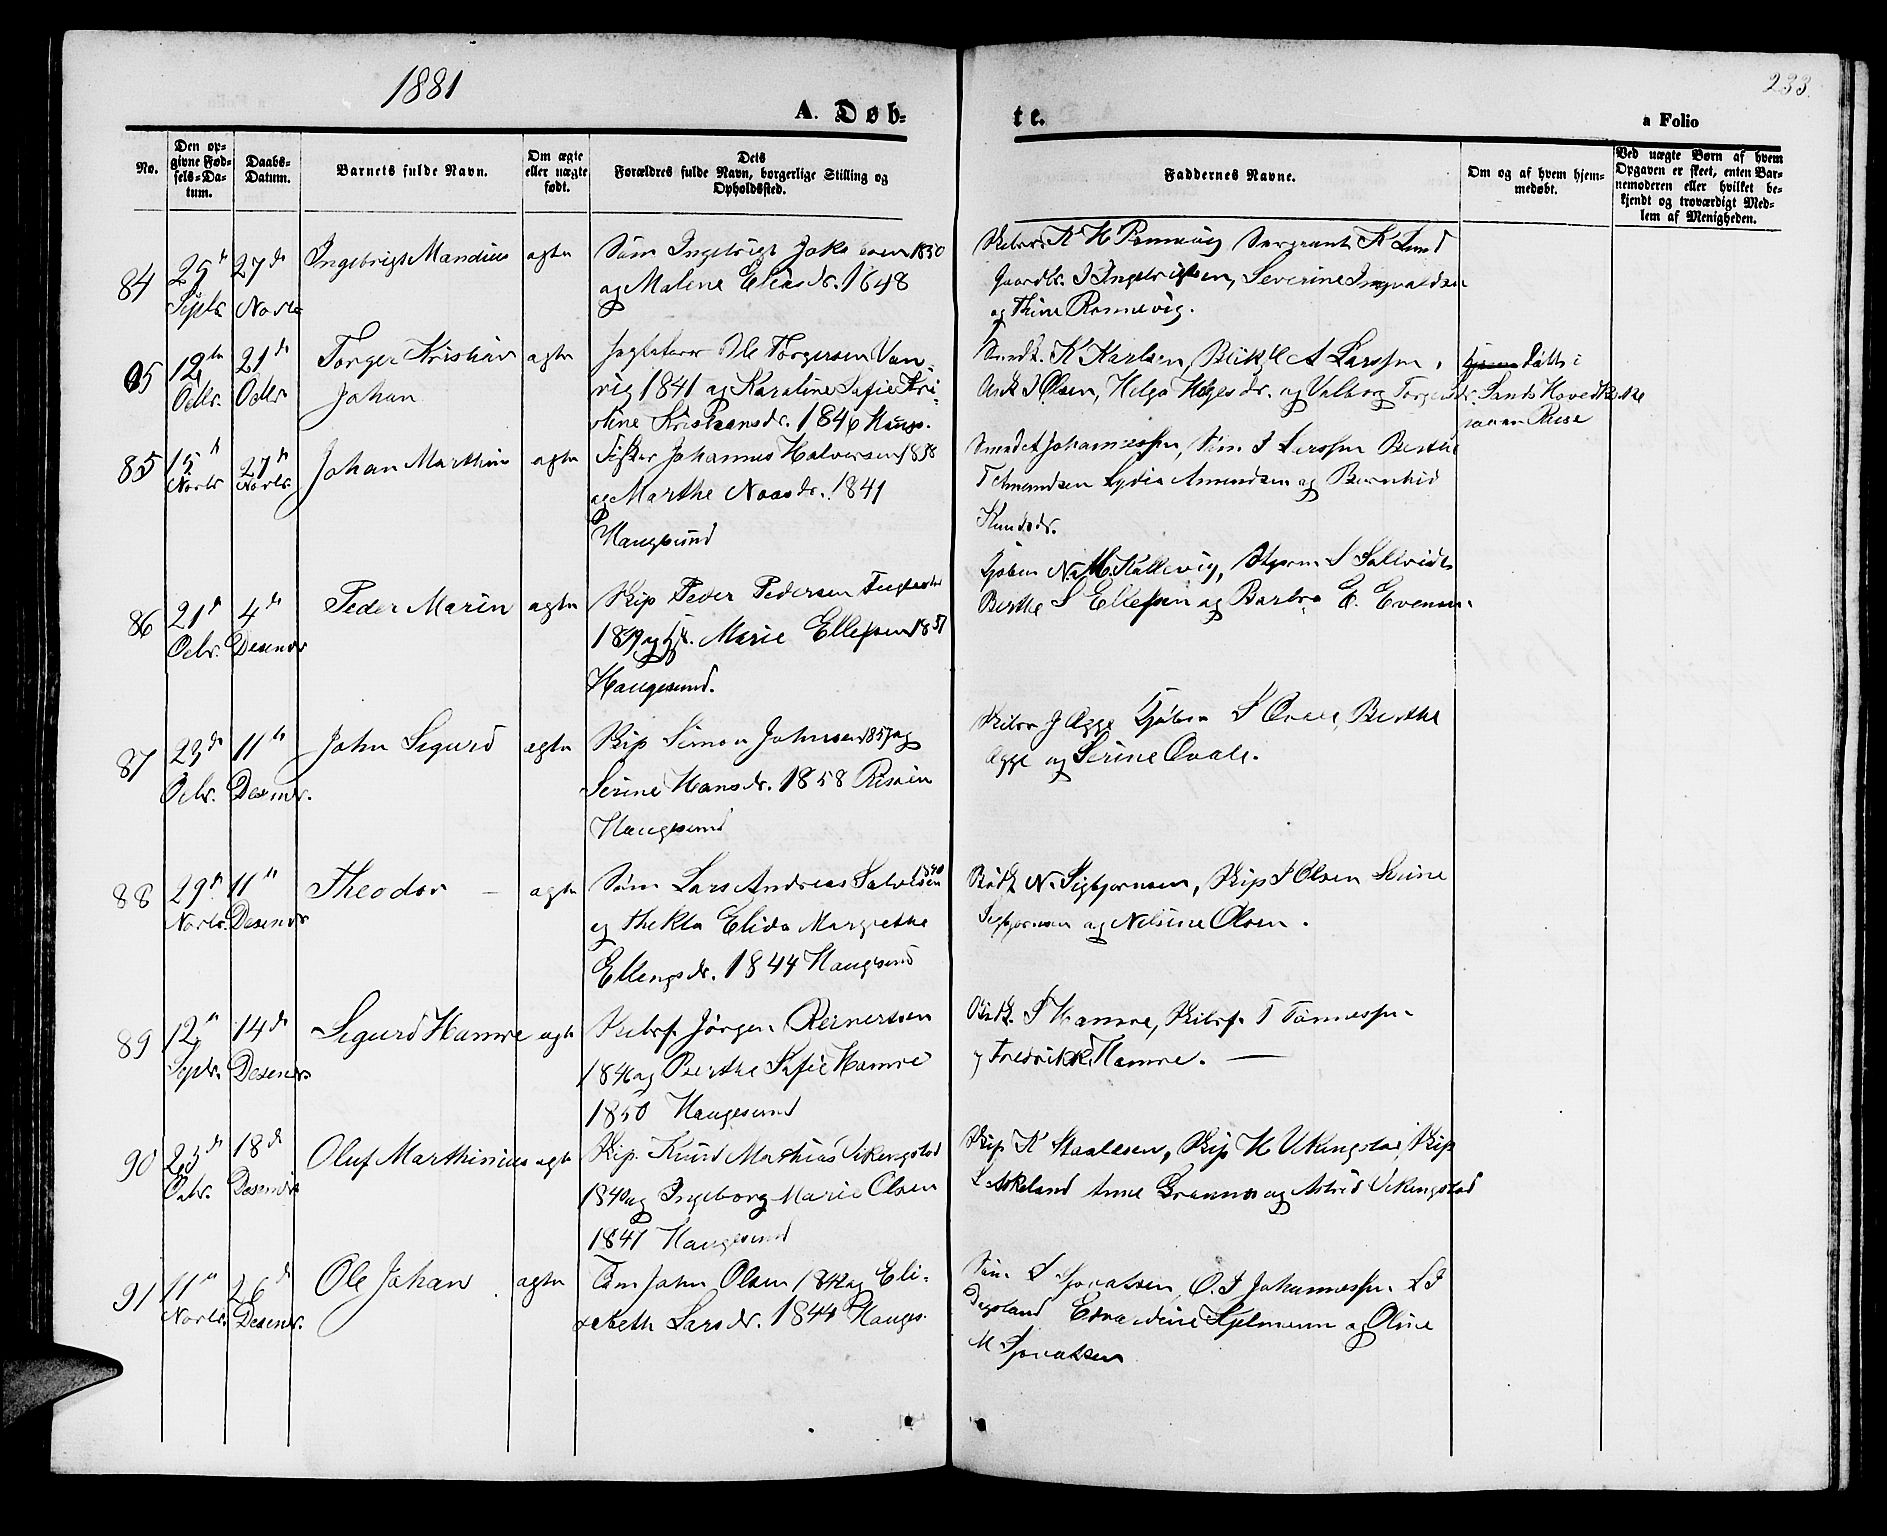 1881
233.
A. Døb-
te.
a Folio
No.
Den op-
givne Fød-
sels-Da-
tum.
Daabs-
Datum.
Barnets fulde Navn.
Om ægte
eller uægte
født.
Dets
Forældres fulde Navn, borgerlige Stilling og
Opholdssted.
Faddernes Navne.
Om og af hvem hjem-
medøbt.
Ved uægte Børn af hvem
Opgaven er skeet, enten Bar-
nemoderen eller hvilket be-
kjendt og troværdigt Med-
lem af Menigheden.
84
25
Septr.
27de
Novbr
Ingebrigt Mandius
ægte
Søm Ingebrigt Jakobsen 1850
og Malene Eliasdr. 1848
K H Rønnevig Sergeant K Lund
J Ingebrigtsen, Severine Ingvaldsen
og Thine Rønnevig.
85
12te
Octbr.
21de
Octbr
Torger Kristian
Johan
ægte
Ole Torgersen Van-
vig 1841 og Karoline Sofie Kri-
stine Kristiansdr. 1846 Haugs.
K Karlsen, A Larssen,
J Olsen, Helga Helgesdr. og Valborg Torgersdr.
døbt i
Sands Hovedkirke
85
15
Novbr
27
Novbr.
Johan Marthin
ægte
Fisker Johannes Halvorsen 1838
og Marthe Naasdr. 1841
Haugesund
Johannessen, Søm. J Iverssen Berthe
Lydia Amundsen og
Knudsdr.
86
21de
Octbr.
4de
Desembr
Peder Marin
ægte
Skip Peder Pedersen
1849 og Marie Ellefsen 1857
Haugesund.
N. M. Kallevig, S
Berthe S Ellefsen og Barbro E. Evensen.
87
23de
Octbr.
11te
Desembr.
John Sigurd
ægte
Skip Simon Johnsen 1857 og
Serine Hansdr. 1858 Risøen
Haugesund
J Egge S Qvale, Berthe
Egge og Serine Qvale.
88
29de
Novbr.
11te
Desembr
Theodor —
ægte
Søm Lars Andreas Salvesen 1840
og Thekla Elida Margrethe
Ellengsdr. 1844 Haugesund
N. Sigbjørnsen, Skip J Olsen Serine
Sigbjørnsen og Nilsine Olsen.
89
12te
Septr.
14de
Desembr
Sigurd Hamre
ægte
Jørgen Reinertsen
1846 og Berthe Sofie Hamre
1850 Haugesund
S Hamre, T Tønnessen
og Fredrikke Hamre. —
90
23de
Octbr.
18de
Desembr.
Oluf Marthinius
ægte
Skip. Knud Mathias Vikingstad
1840 og Ingeborg Marie Olsen
1847 Haugesund
Skip K Staalesen, Skip H Vikingstad, Skip
L Askeland Anne og Astrid Vikingstad
91
11te
Novbr.
26de
Desembr.
Ole Johan
ægte
Tøm John Olsen 1842 og Eli-
sabeth Larsdr. 1844 Haugs.
Søm S O. J Johannessen L J
og Oline
M